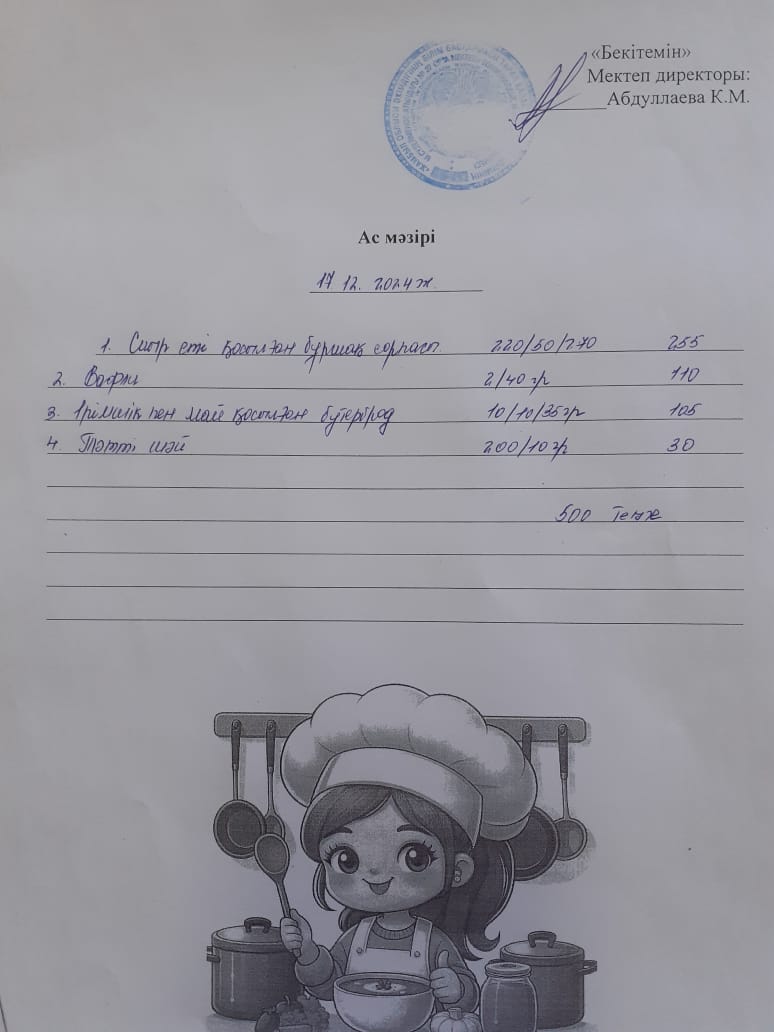 «Бекітемін»
Мектеп директоры:
Абдуллаева К.М.
Ас мәзірі
17 12. 2024 ж.
1. Сиыр еті қосылған бұршақ сорпасы 220/50/270 255
2. Вафли 2/40 гр 110
3. Ірімшік пен май қосылған бутерброд 10/10/35 гр 105
4. Тәтті шәй 200/10 гр 30
500 теңге